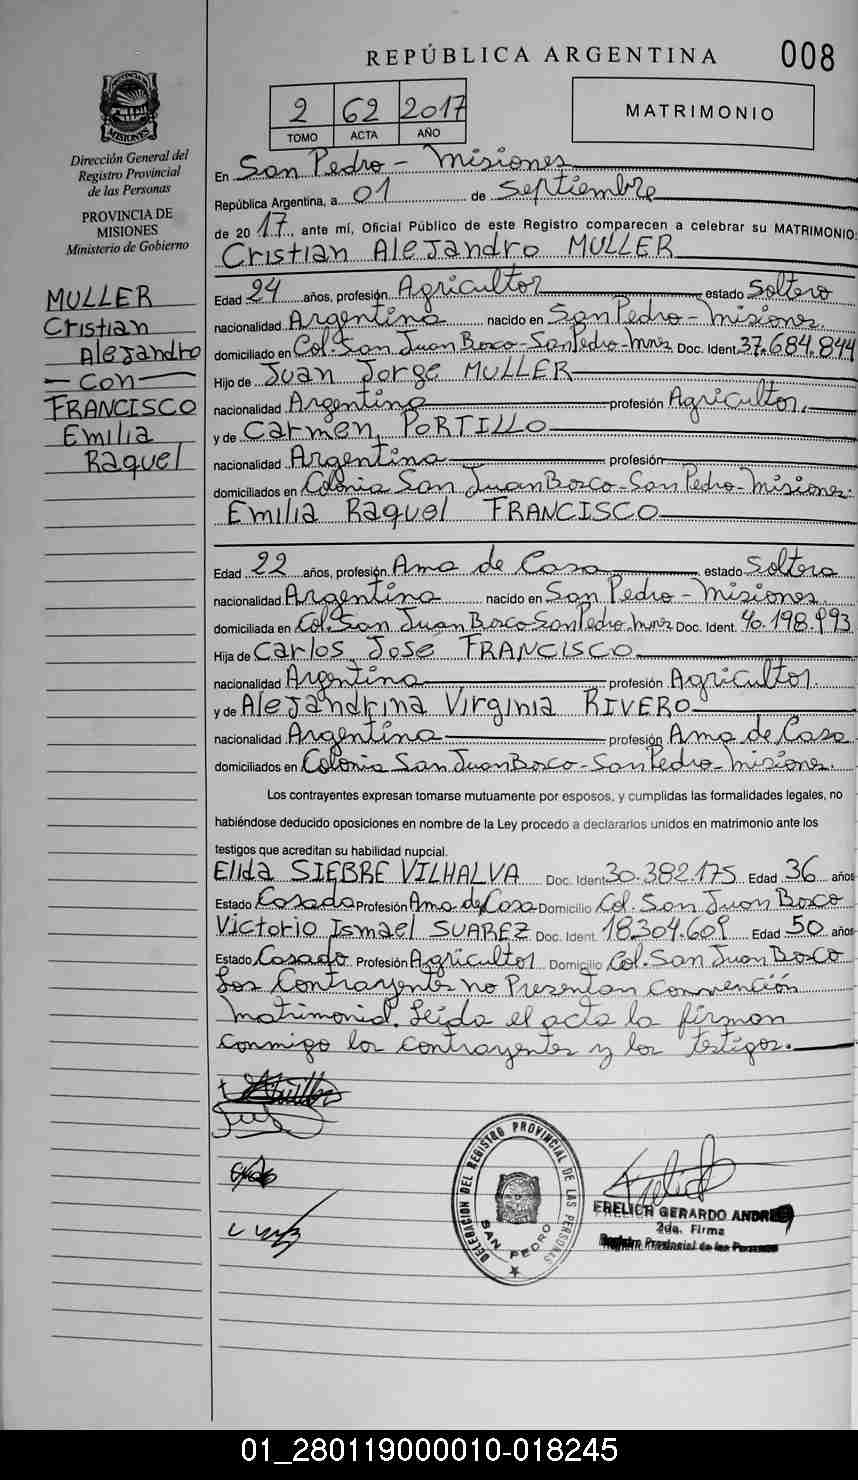 REPÚBLICA ARGENTINA 008
2 62 2017
TOMO ACTA AÑO
MATRIMONIO
PROVINCIA DE MISIONES
Dirección General del
Registro Provincial
de las Personas
PROVINCIA DE
MISIONES
Ministerio de Gobierno
MULLER
Cristian
Alejandro
— con —
FRANCISCO
Emilia
Raquel
En San Pedro - Misiones
República Argentina, a 01 de Septiembre
de 2017, ante mí, Oficial Público de este Registro comparecen a celebrar su MATRIMONIO:
Cristian Alejandro MULLER
Edad 24 años, profesión Agricultor estado Soltero
nacionalidad Argentina nacido en San Pedro - Misiones.
domiciliado en Col. San Juan Bosco - San Pedro - Mnes Doc. Ident. 37.684.844
Hijo de Juan Jorge MULLER
nacionalidad Argentina profesión Agricultor.
y de Carmen PORTILLO
nacionalidad Argentina profesión
domiciliados en Colonia San Juan Bosco - San Pedro - Misiones.
Emilia Raquel FRANCISCO
Edad 22 años, profesión Ama de Casa estado Soltera
nacionalidad Argentina nacido en San Pedro - Misiones.
domiciliada en Col. San Juan Bosco San Pedro. Mnes Doc. Ident. 40.198.993
Hija de Carlos José FRANCISCO
nacionalidad Argentina profesión Agricultor.
y de Alejandrina Virginia RIVERO
nacionalidad Argentina profesión Ama de Casa
domiciliados en Colonia San Juan Bosco - San Pedro - Misiones.
Los contrayentes expresan tomarse mutuamente por esposos, y cumplidas las formalidades legales, no
habiéndose deducido oposiciones en nombre de la Ley procedo a declararlos unidos en matrimonio ante los
testigos que acreditan su habilidad nupcial.
Elida SIEBRE VILHALVA Doc. Ident 30.382.175 Edad 36 años
Estado Casada Profesión Ama de Casa Domicilio Col. San Juan Bosco
Victorio Ismael SUAREZ Doc. Ident. 18.304.609 Edad 50 años
Estado Casado Profesión Agricultor Domicilio Col. San Juan Bosco
Los Contrayentes no Presentan Convención
Matrimonial. Leida el acta la firman
conmigo los contrayentes y los testigos.
DELEGACION DEL REGISTRO PROVINCIAL DE LAS PERSONAS
SAN PEDRO
ERELICH GERARDO ANDRES
2da. Firma
Registro Provincial de las Personas
01_280119000010-018245